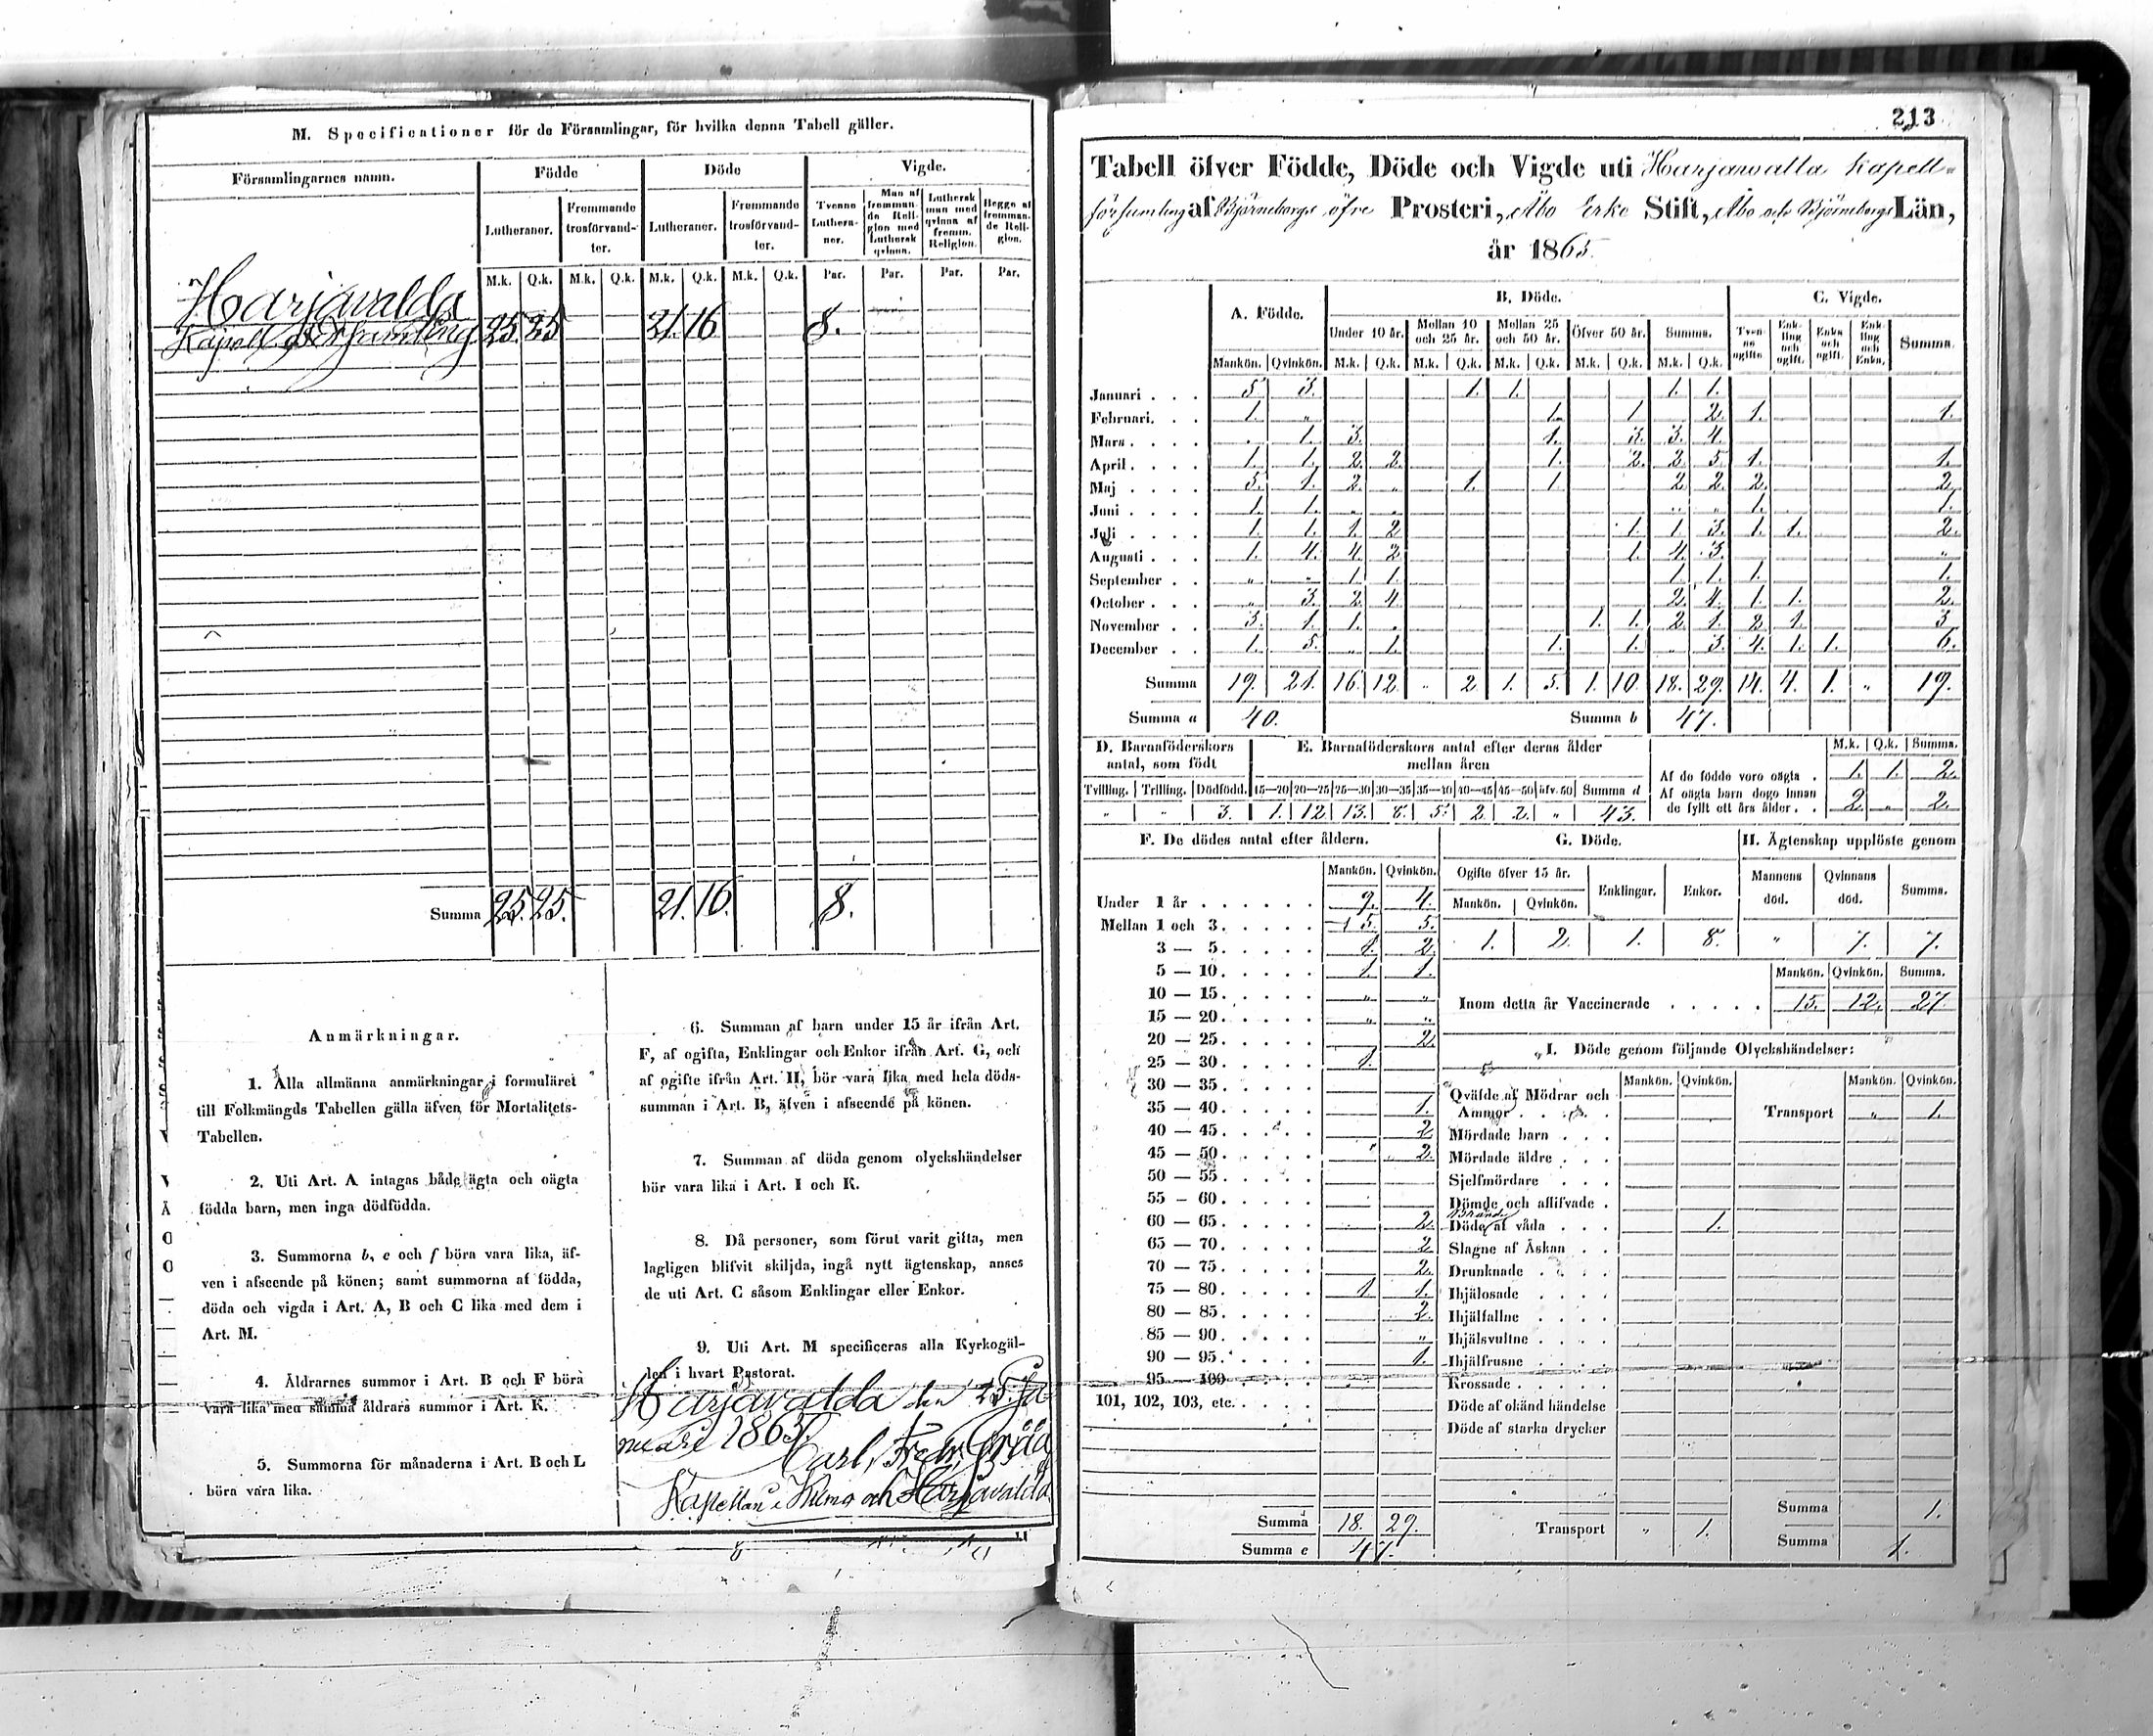 M. Specificationer för de Församlingar, för hvilka denna Tabell gäller.
Församlingarnes namn. Födde Döde Vigde.
Lutheraner. Fremmande trosförvandter. Lutheraner. Fremmande trosförvandter. Tvenne Lutheraner. Man af fremmande Religion med Luthersk qvinna. Luthersk man med qvinna af fremm. Religion. Begge af fremmande Religion.
M.k. Q.k. M.k. Q.k. M.k. Q.k. M.k. Q.k. Par. Par. Par. Par.
Harjavalda
Kapell Församling 25. 25 21. 16 8.
Summa 25. 25. 21. 16. 8.
Anmärkningar.
1. Alla allmänna anmärkningar i formuläret
till Folkmängds Tabellen gälla äfven för Mortalitets-
Tabellen.
2. Uti Art. A intagas både ägta och oägta
födda barn, men inga dödfödda.
3. Summorna b, e och f böra vara lika, äf-
ven i afseende på könen; samt summorna af födda,
döda och vigda i Art. A, B och C lika med dem i
Art. M.
4. Åldrarnes summor i Art. B och F böra
vara lika med samma åldrars summor i Art. K.
5. Summorna för månaderna i Art. B och L
böra vara lika.
6. Summan af barn under 15 år ifrån Art.
F, af ogifta, Enklingar och Enkor ifrån Art. G, och
af ogifte ifrån Art. H, bör vara lika med hela döds-
summan i Art. B, äfven i afseende på könen.
7. Summan af döda genom olyckshändelser
bör vara lika i Art. I och K.
8. Då personer, som förut varit gifta, men
lagligen blifvit skiljda, ingå nytt ägtenskap, anses
de uti Art. C såsom Enklingar eller Enkor.
9. Uti Art. M specificeras alla Kyrkogäl-
den i hvart Pastorat.
Harjavalda den 25. Ja-
nuari 1865.
Carl. Fredr.
Kapellan i Kumo och Harjavalda
213
Tabell öfver Födde, Döde och Vigde uti Harjavalla Kapell-
församling af Björneborgs öfre Prosteri, Åbo Erke Stift, Åbo och Björneborgs Län,
år 1865.
A. Födde. B. Döde. C. Vigde.
Under 10 år. Mellan 10 och 25 år. Mellan 25 och 50 år. Öfver 50 år. Summa. Tvenne ogifta Enkling och ogift. Enka och ogift. Enkling och Enka. Summa.
Mankön. Qvinkön. M.k. Q.k. M.k. Q.k. M.k. Q.k. M.k. Q.k. M.k. Q.k.
Januari . . . 5 3. 1. 1. 1. 1.
Februari. . . 1. „ 1. 1. 2. 1. 1.
Mars . . . . . 1. 3. 1. 3. 3. 4.
April . . . . 1. 1. 2. 2. 1. 2. 2. 5. 1. 1.
Maj . . . . 5. 1. 2. „ 1. 1 2. 2. 2. 2.
Juni . . . . 1. 1. „ „ „ „ 1. 1.
Juli . . . . 1. 1. 1. 2 1. 1 3. 1. 1. 2.
Augusti . . . 1. 4. 4. 2 1. 4. 3. „
September . . „ „ 1. 1. 1. 1. 1. 1.
October . . . „ 3. 2. 4. 2. 4. 1. 1. 2.
November . . 3. 1. 1. . 1. 1. 2. 1. 2. 1. 3
December . . 1. 5. „ 1. 1. 1. „ 3. 4. 1. 1. 6.
Summa 19. 21. 16. 12. „ 2 1. 5. 1. 10. 18. 29. 14. 4. 1. „ 19.
Summa a 40. Summa b 47.
D. Barnaföderskors antal, som födt E. Barnaföderskors antal efter deras ålder mellan åren M.k. Q.k. Summa.
Af de födde voro oägta . 1. 1. 2.
Tvilling. Trilling. Dödfödd. 15—20 20—25 25—30 30—35 35—40 40—45 45—50 öfv. 50 Summa d
Af oägta barn dogo innan de fyllt ett års ålder . . 2. „ 2.
„ „ 3. 1. 12. 13. 8. 5. 2. 2. „ 43.
F. De dödes antal efter åldern. G. Döde. H. Ägtenskap upplöste genom
Mankön. Qvinkön. Ogifte öfver 15 år. Enklingar. Enkor. Mannens död. Qvinnans död. Summa.
Mankön. Qvinkön.
1. 2. 1. 8. „ 7. 7.
Under 1 år . . . . . . 9. 4.
Mellan 1 och 3. . . . . 5. 5.
3 — 5. . . . . 1. 2.
5 — 10. . . . . 1. 1.
10 — 15. . . . . „ „
15 — 20. . . . . „ „
20 — 25. . . . . 2.
25 — 30. . . . . 1.
30 — 35. . . . .
35 — 40. . . . . 1.
40 — 45. . . . . 2
45 — 50. . . . . „ 2.
50 — 55. . . . .
55 – 60. . . . .
60 — 65. . . . . 2.
65 — 70. . . . . 2
70 — 75. . . . . 2.
75 — 80. . . . . 1. 1.
80 — 85. . . . . 2.
85 — 90. . . . . „
90 — 95. . . . . 1.
95 — 100 . . . . .
101, 102, 103, etc. . . . .
Summa 18. 29.
Summa e 47.
Mankön. Qvinkön. Summa.
Inom detta år Vaccinerade . . . . . 15. 12. 27.
I. Döde genom följande Olyckshändelser:
Mankön. Qvinkön. Mankön. Qvinkön.
Qväfde af Mödrar och
Ammor . . . . Transport „ 1.
Mördade barn . . .
Mördade äldre . . .
Sjelfmördare . . .
Dömde och aflifvade .
Döde af våda . . . 1.
Slagne af Åskan . .
Drunknade . . . .
Ihjälosade . . . .
Ihjälfallne . . . .
Ihjälsvultne . . . .
Ihjälfrusne . . . .
Krossade . . . . .
Döde af okänd händelse
Döde af starka drycker
Summa 1.
Transport „ 1.
Summa 1.